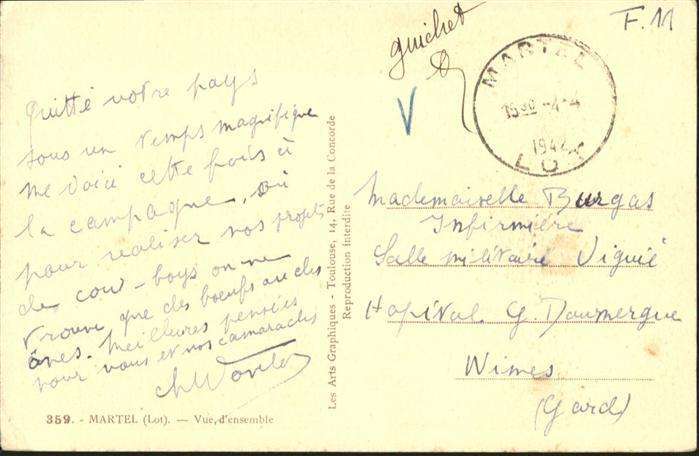 F.M
guichet
MARTEL
15 30 -4-4
1942
LOT
V
quitté votre pays
sous un temps magnifique
me voici cette fois à
la campagne, où
pour réaliser nos projets
de cow-boys on ne
trouve que des boeufs ou des
ânes. Meilleures pensées
pour vous et nos camarades
Mademoiselle Burgas
Infirmière
Salle militaire Viguié
Hopital G. Doumergue
Nimes
(Gard)
Les Arts Graphiques - Toulouse, 14, Rue de la Concorde
Reproduction interdite
359. - MARTEL (Lot). — Vue d'ensemble